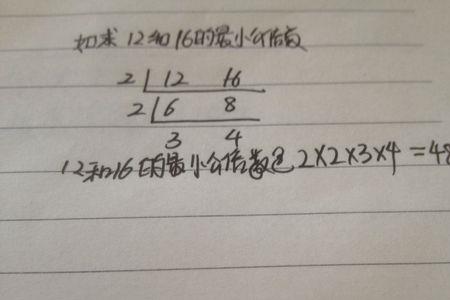 如求12和16的最小公倍数
2 12 16
2 6 8
3 4
12和16的最小公倍数是2×2×3×4=48